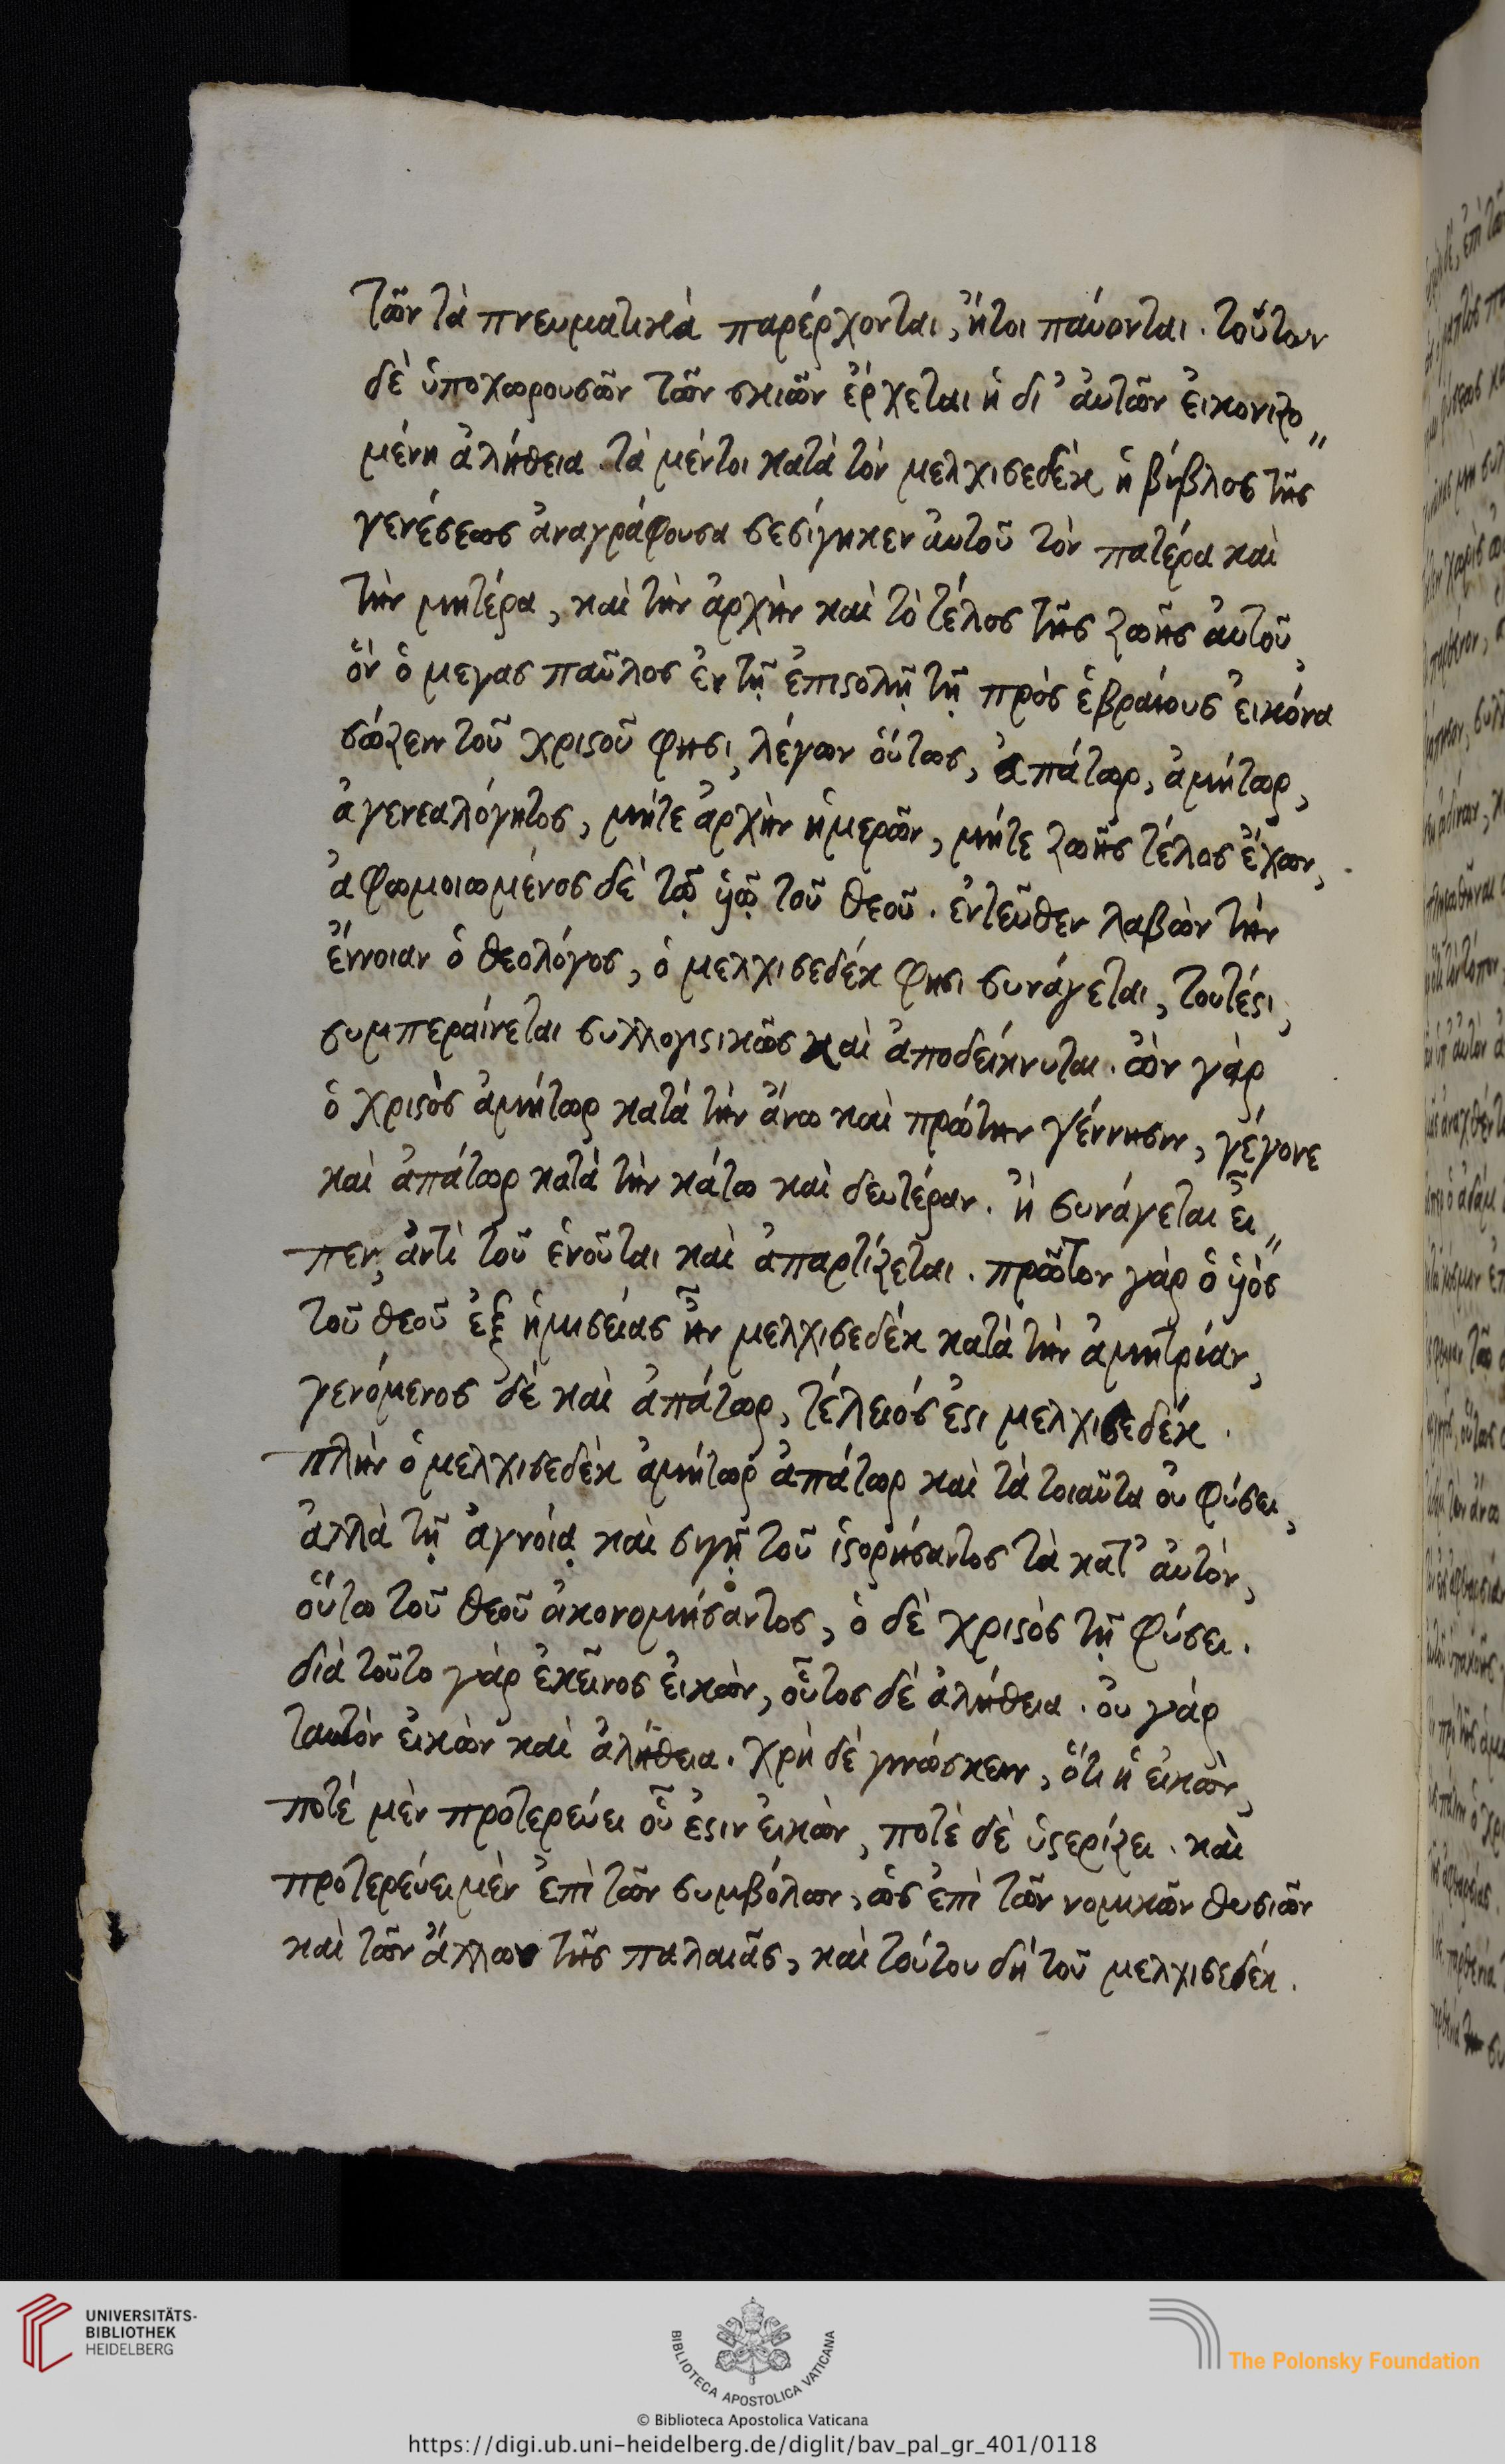 τῶν τὰ πνευματικὰ παρέρχονται, ἤτοι παύονται. τούτων
δὲ ὑποχωρουσῶν τῶν σκιῶν ἔρχεται ἡ δι᾽ αὐτῶν εἰκονιζο„
μένη ἀλήθεια. τὰ μέντοι κατὰ τὸν μελχισεδὲκ ἡ βίβλος τῆς
γενέσεως ἀναγράφουσα σεσίγηκεν αὐτοῦ τὸν πατέρα καὶ
τὴν μητέρα, καὶ τὴν ἀρχὴν καὶ τὸ τέλος τῆς ζωῆς αὐτοῦ,
ὃν ὁ μεγας παῦλος ἐν τῇ ἐπιϛολῇ τῇ πρὸς ἑβραίους εἰκόνα
σώζειν τοῦ χριϛοῦ φησι, λέγων οὕτως, ἀπάτωρ, ἀμήτωρ,
ἀγενεαλόγητος, μήτε ἀρχὴν ἡμερῶν, μήτε ζωῆς τέλος ἔχων,
ἀφωμοιωμένος δὲ τῷ ὑῷ τοῦ θεοῦ. ἐντεῦθεν λαβὼν τὴν
ἔννοιαν ὁ θεολόγος, ὁ μελχισεδέκ φησι συνάγεται, τουτέϛι,
συμπεραίνεται συλλογιϛικῶς καὶ ἀποδείκνυται. ὢν γὰρ
ὁ χριϛὸς ἀμήτωρ κατὰ τὴν ἄνω καὶ πρώτην γέννησιν, γέγονε
καὶ ἀπάτωρ κατὰ τὴν κάτω καὶ δευτέραν. ἢ συνάγεται εἶ„
πεν, ἀντὶ τοῦ ἑνοῦται καὶ ἀπαρτίζεται. πρῶτον γὰρ ὁ ὑὸς
τοῦ θεοῦ ἐξ ἡμισείας ἦν μελχισεδέκ κατὰ τὴν ἀμητρίαν,
γενόμενος δὲ καὶ ἀπάτωρ, τέλειός ἐϛι μελχισεδέκ.
πλὴν ὁ μελχισεδὲκ ἀμήτωρ ἀπάτωρ καὶ τὰ τοιαῦτα οὐ φύσει,
ἀλλὰ τῇ ἀγνοίᾳ καὶ σιγῇ τοῦ ἱϛορήσαντος τὰ κατ᾽ αὐτὸν,
οὕτω τοῦ θεοῦ οἰκονομήσαντος, ὁ δὲ χριϛὸς τῇ φύσει.
διὰ τοῦτο γὰρ ἐκεῖνος εἰκὼν, οὗτος δὲ ἀλήθεια. οὐ γὰρ
ταυτὸν εἰκὼν καὶ ἀλήθεια. χρὴ δὲ γινώσκειν, ὅτι ἡ εἰκὼν,
ποτὲ μὲν προτερεύει οὗ ἐϛιν εἰκὼν, ποτὲ δὲ ὑϛερίζει. καὶ
προτερεύει μὲν ἐπὶ τῶν συμβόλων, ὡς ἐπὶ τῶν νομικῶν θυσιῶν
καὶ τῶν ἄλλων τῆς παλαιᾶς, καὶ τούτου δὴ τοῦ μελχισεδέκ.
UNIVERSITÄTS-
BIBLIOTHEK
HEIDELBERG
BIBLIOTECA APOSTOLICA VATICANA
The Polonsky Foundation
© Biblioteca Apostolica Vaticana
https://digi.ub.uni-heidelberg.de/diglit/bav_pal_gr_401/0118